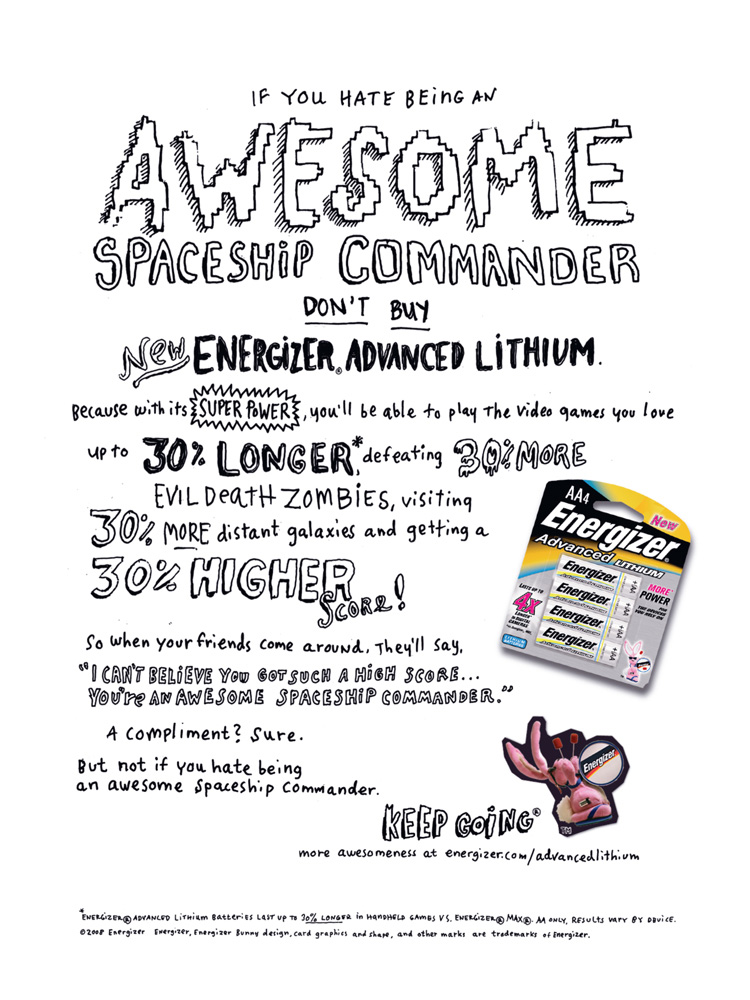 IF YOU HATE BEING AN
AWESOME
SPACESHIP COMMANDER
DON'T BUY
New ENERGIZER® ADVANCED LITHIUM.
Because with its SUPER POWER, you'll be able to play The Video games you love
up to 30% LONGER,* defeating 30% MORE
EVIL DEATH ZOMBIES, visiting
30% MORE distant galaxies and getting a
30% HIGHER
Score!
So when your friends come around, They'll say,
"I CAN'T BELIEVE YOU GOT SUCH A HIGH SCORE...
YOU're AN AWESOME SPACESHIP COMMANDER."
A compliment? Sure.
But not if you hate being
an awesome Spaceship Commander.
KEEP GOING®
more awesomeness at energizer.com/advancedlithium
AA4
New
Energizer.
Advanced LITHIUM
Energizer.
Energizer.
Energizer.
Energizer.
LASTS UP TO
4X
LONGER
IN DIGITAL
CAMERAS
MORE
POWER
FOR
THE DEVICES
YOU RELY ON
Energizer
TM
*ENERGIZER® ADVANCED LITHIUM Batteries LAST UP TO 30% LONGER in HANDHELD GAMES VS. ENERGIZER® MAX®. AA ONLY, RESULTS VARY BY DEVICE.
©2008 Energizer Energizer, Energizer Bunny design, card graphics and shape, and other marks are trademarks of Energizer.